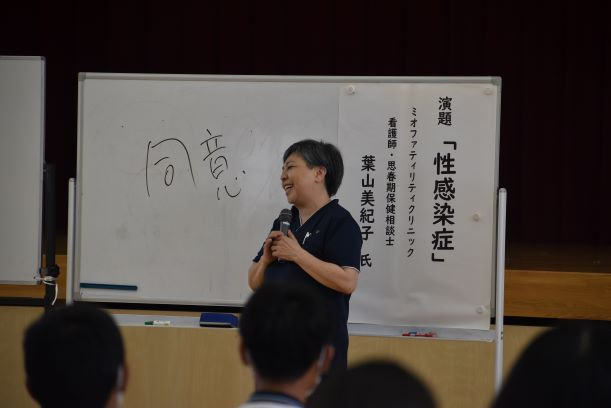 同意
演題 「性感染症」
ミオファティリティクリニック
看護師・思春期保健相談士
葉山美紀子 氏